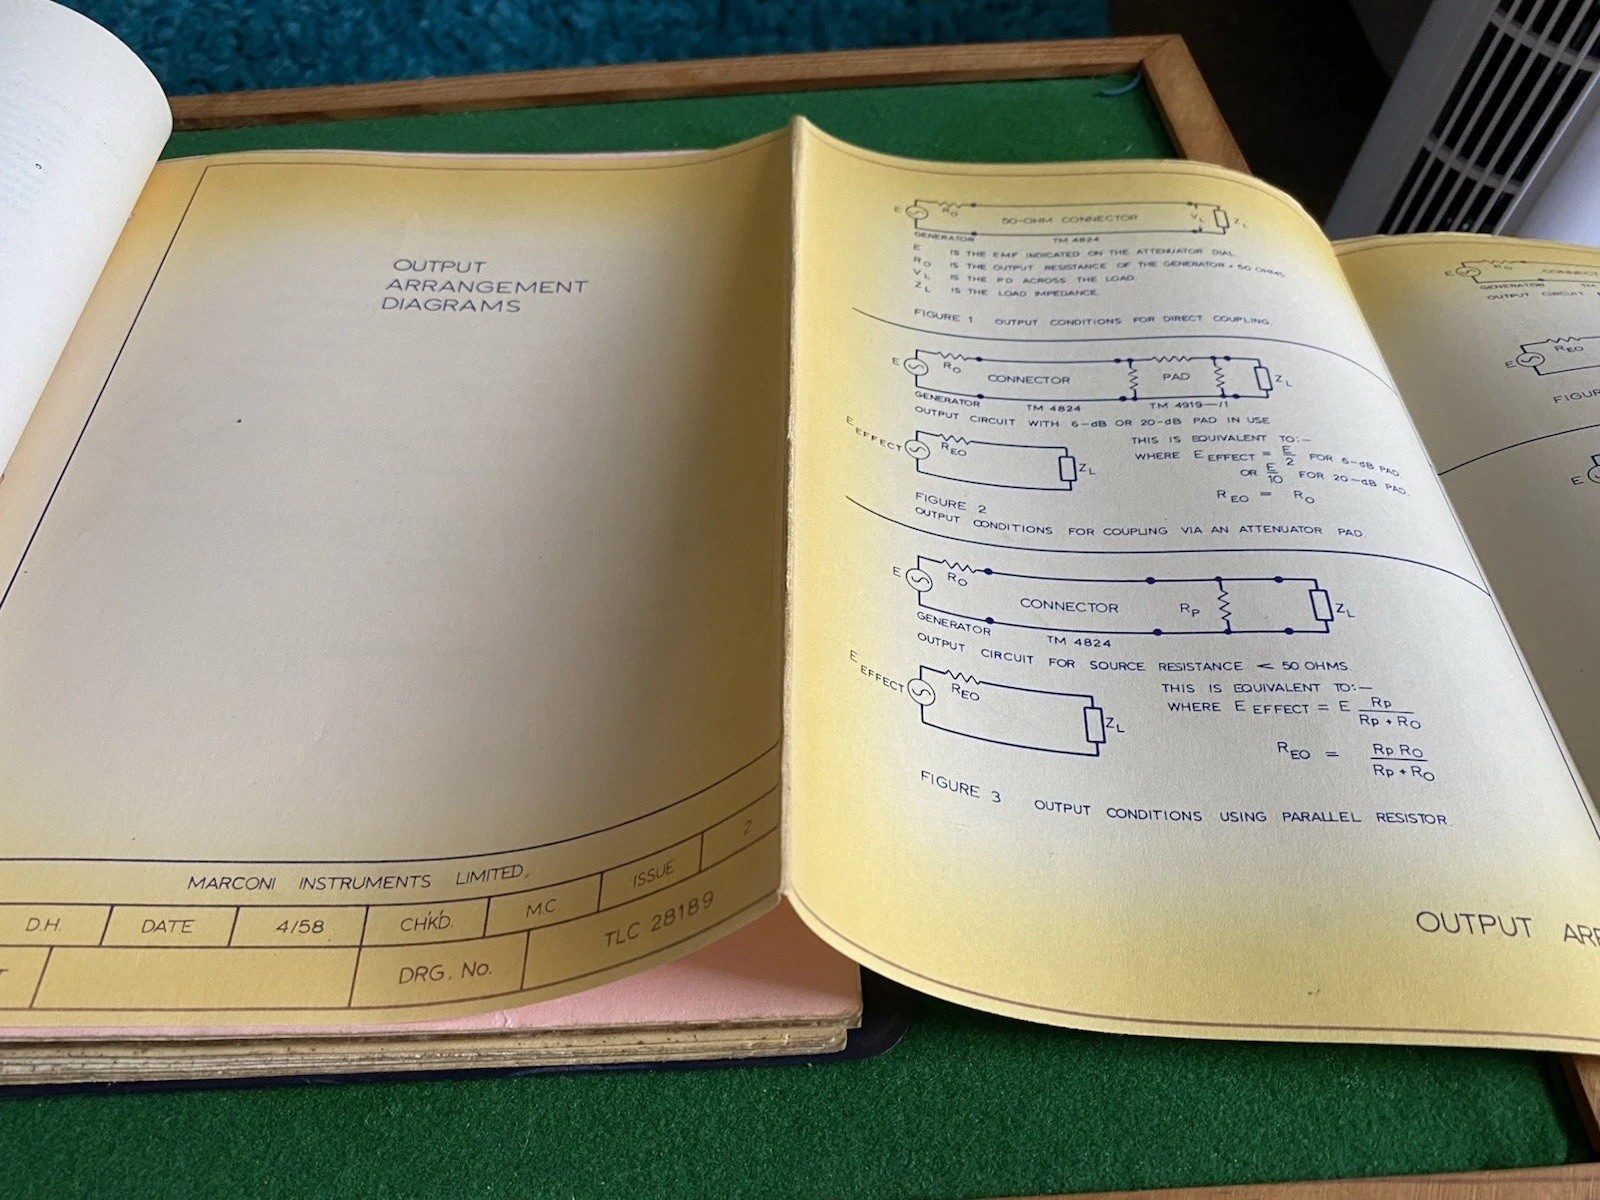 OUTPUT
ARRANGEMENT
DIAGRAMS
MARCONI INSTRUMENTS LIMITED.
D.H. DATE 4/58 CHK'D. M.C ISSUE 2
DRG. No. TLC 28189
E RO 50-OHM CONNECTOR VL ZL
GENERATOR TM 4824
E IS THE EMF INDICATED ON THE ATTENUATOR DIAL
RO IS THE OUTPUT RESISTANCE OF THE GENERATOR = 50 OHMS
VL IS THE PD ACROSS THE LOAD
ZL IS THE LOAD IMPEDANCE
FIGURE 1 OUTPUT CONDITIONS FOR DIRECT COUPLING.
E RO CONNECTOR PAD ZL
GENERATOR TM 4824 TM 4919—/1
OUTPUT CIRCUIT WITH 6-dB OR 20-dB PAD IN USE
E EFFECT REO ZL
THIS IS EQUIVALENT TO:—
WHERE E EFFECT = E/2 FOR 6-dB PAD
OR E/10 FOR 20-dB PAD.
REO = RO
FIGURE 2
OUTPUT CONDITIONS FOR COUPLING VIA AN ATTENUATOR PAD
E RO CONNECTOR RP ZL
GENERATOR TM 4824
OUTPUT CIRCUIT FOR SOURCE RESISTANCE < 50 OHMS
E EFFECT REO ZL
THIS IS EQUIVALENT TO:—
WHERE E EFFECT = E RP / RP + RO
REO = RP RO / RP + RO
FIGURE 3 OUTPUT CONDITIONS USING PARALLEL RESISTOR.
OUTPUT ARR
E RO CONNECT
GENERATOR TM
OUTPUT CIRCUIT
E REO
FIGUR
E